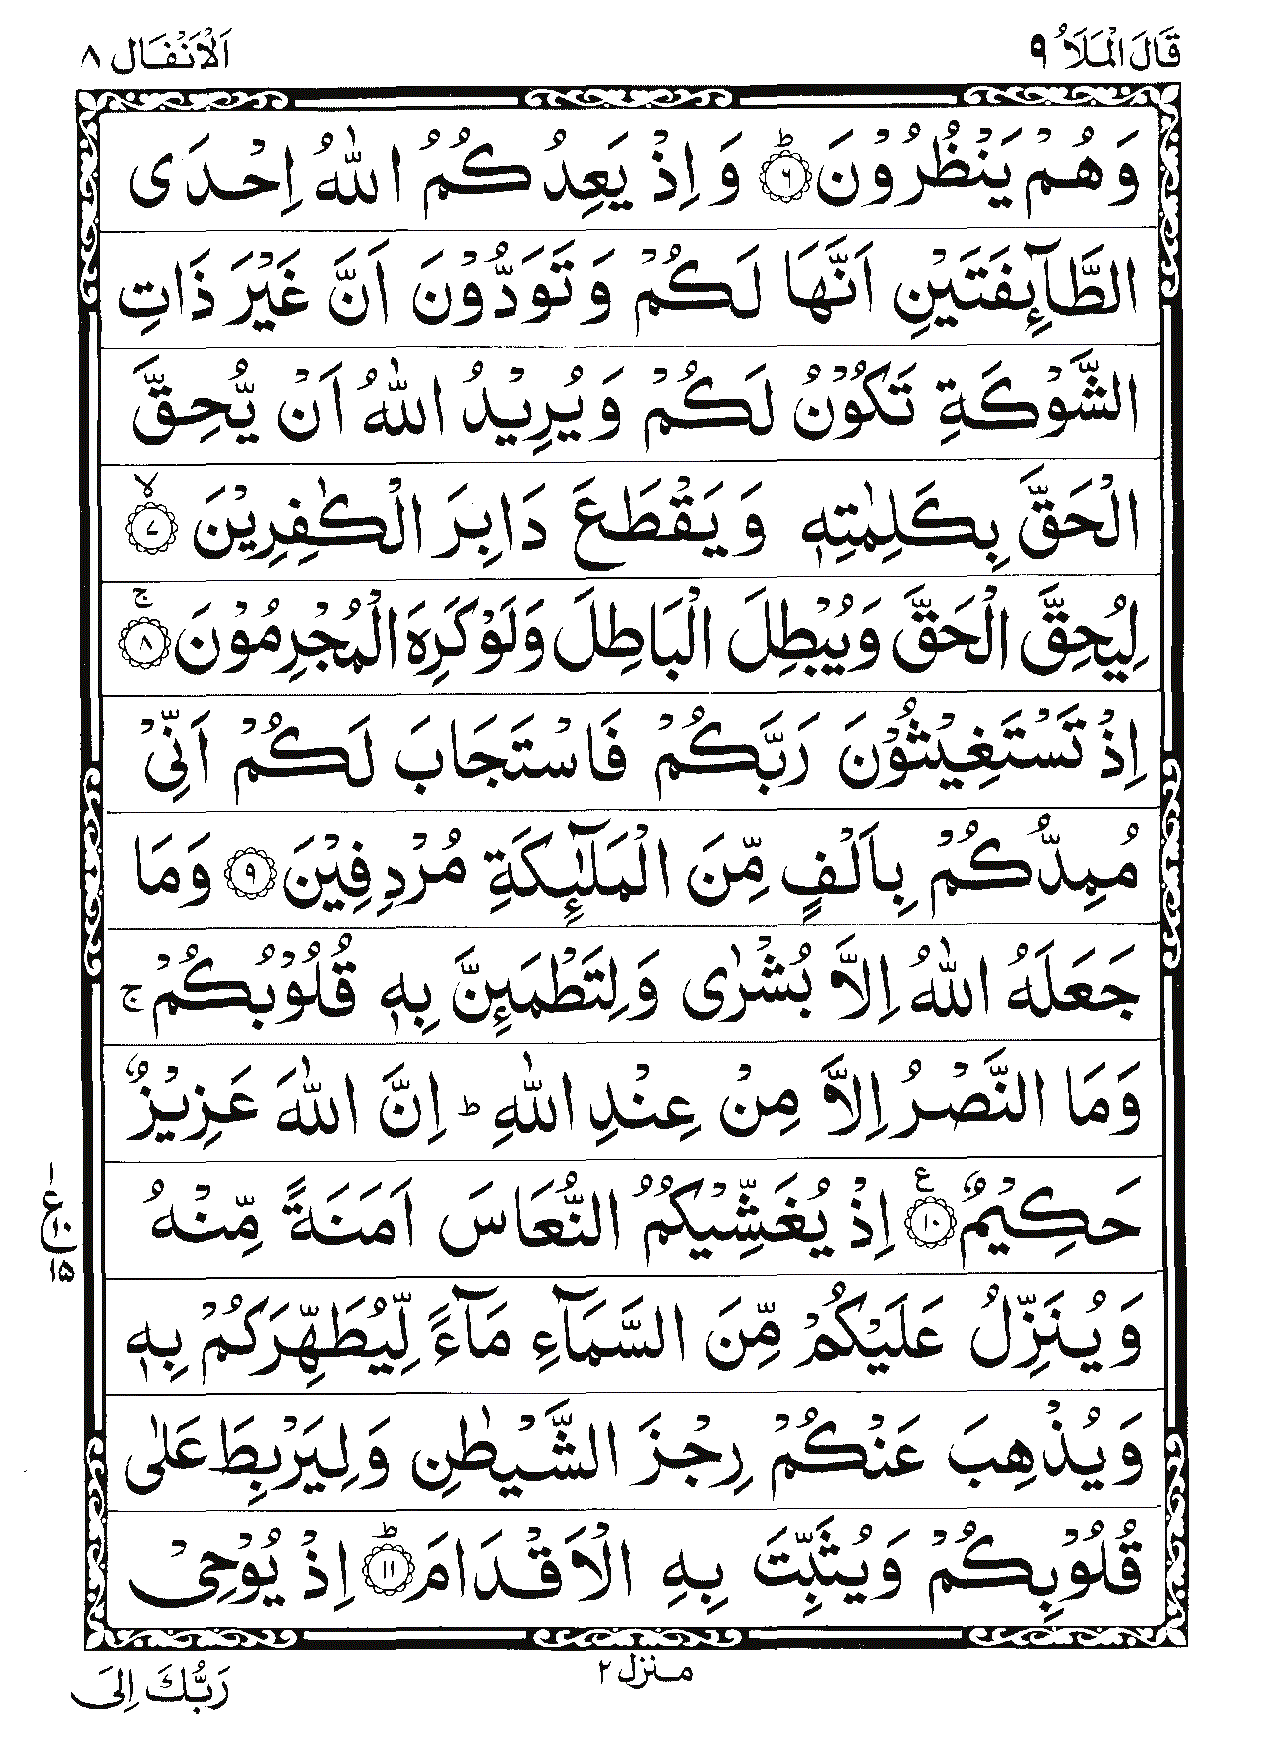 قَالَ الْمَلَاُ ٩
اَلْاَنْفَال ٨
وَهُمْ يَنْظُرُوْنَ ؕ‏﴿۶﴾ وَ اِذْ يَعِدُكُمُ اللّٰهُ اِحْدَى
الطَّآئِفَتَيْنِ اَنَّهَا لَكُمْ وَ تَوَدُّوْنَ اَنَّ غَيْرَ ذَاتِ
الشَّوْكَةِ تَكُوْنُ لَكُمْ وَ يُرِيْدُ اللّٰهُ اَنْ يُّحِقَّ
الْحَقَّ بِكَلِمٰتِهٖ وَ يَقْطَعَ دَابِرَ الْكٰفِرِيْنَ ۙ‏﴿۷﴾
لِيُحِقَّ الْحَقَّ وَيُبْطِلَ الْبَاطِلَ وَلَوْ كَرِهَ الْمُجْرِمُوْنَ ۚ‏﴿۸﴾
اِذْ تَسْتَغِيْثُوْنَ رَبَّكُمْ فَاسْتَجَابَ لَكُمْ اَنِّىْ
مُمِدُّكُمْ بِاَلْفٍ مِّنَ الْمَلٰٓئِكَةِ مُرْدِفِيْنَ ﴿۹﴾ وَمَا
جَعَلَهُ اللّٰهُ اِلَّا بُشْرٰى وَلِتَطْمَئِنَّ بِهٖ قُلُوْبُكُمْ ۚ
وَمَا النَّصْرُ اِلَّا مِنْ عِنْدِ اللّٰهِ ؕ اِنَّ اللّٰهَ عَزِيْزٌ
حَكِيْمٌ ﴿۱۰﴾ ع اِذْ يُغَشِّيْكُمُ النُّعَاسَ اَمَنَةً مِّنْهُ
١
ع ١٠
١۵
وَيُنَزِّلُ عَلَيْكُمْ مِّنَ السَّمَآءِ مَآءً لِّيُطَهِّرَكُمْ بِهٖ
وَيُذْهِبَ عَنْكُمْ رِجْزَ الشَّيْطٰنِ وَلِيَرْبِطَ عَلٰى
قُلُوْبِكُمْ وَيُثَبِّتَ بِهِ الْاَقْدَامَ ؕ‏﴿۱۱﴾ اِذْ يُوْحِىْ
منزل ٢
رَبُّكَ اِلَى